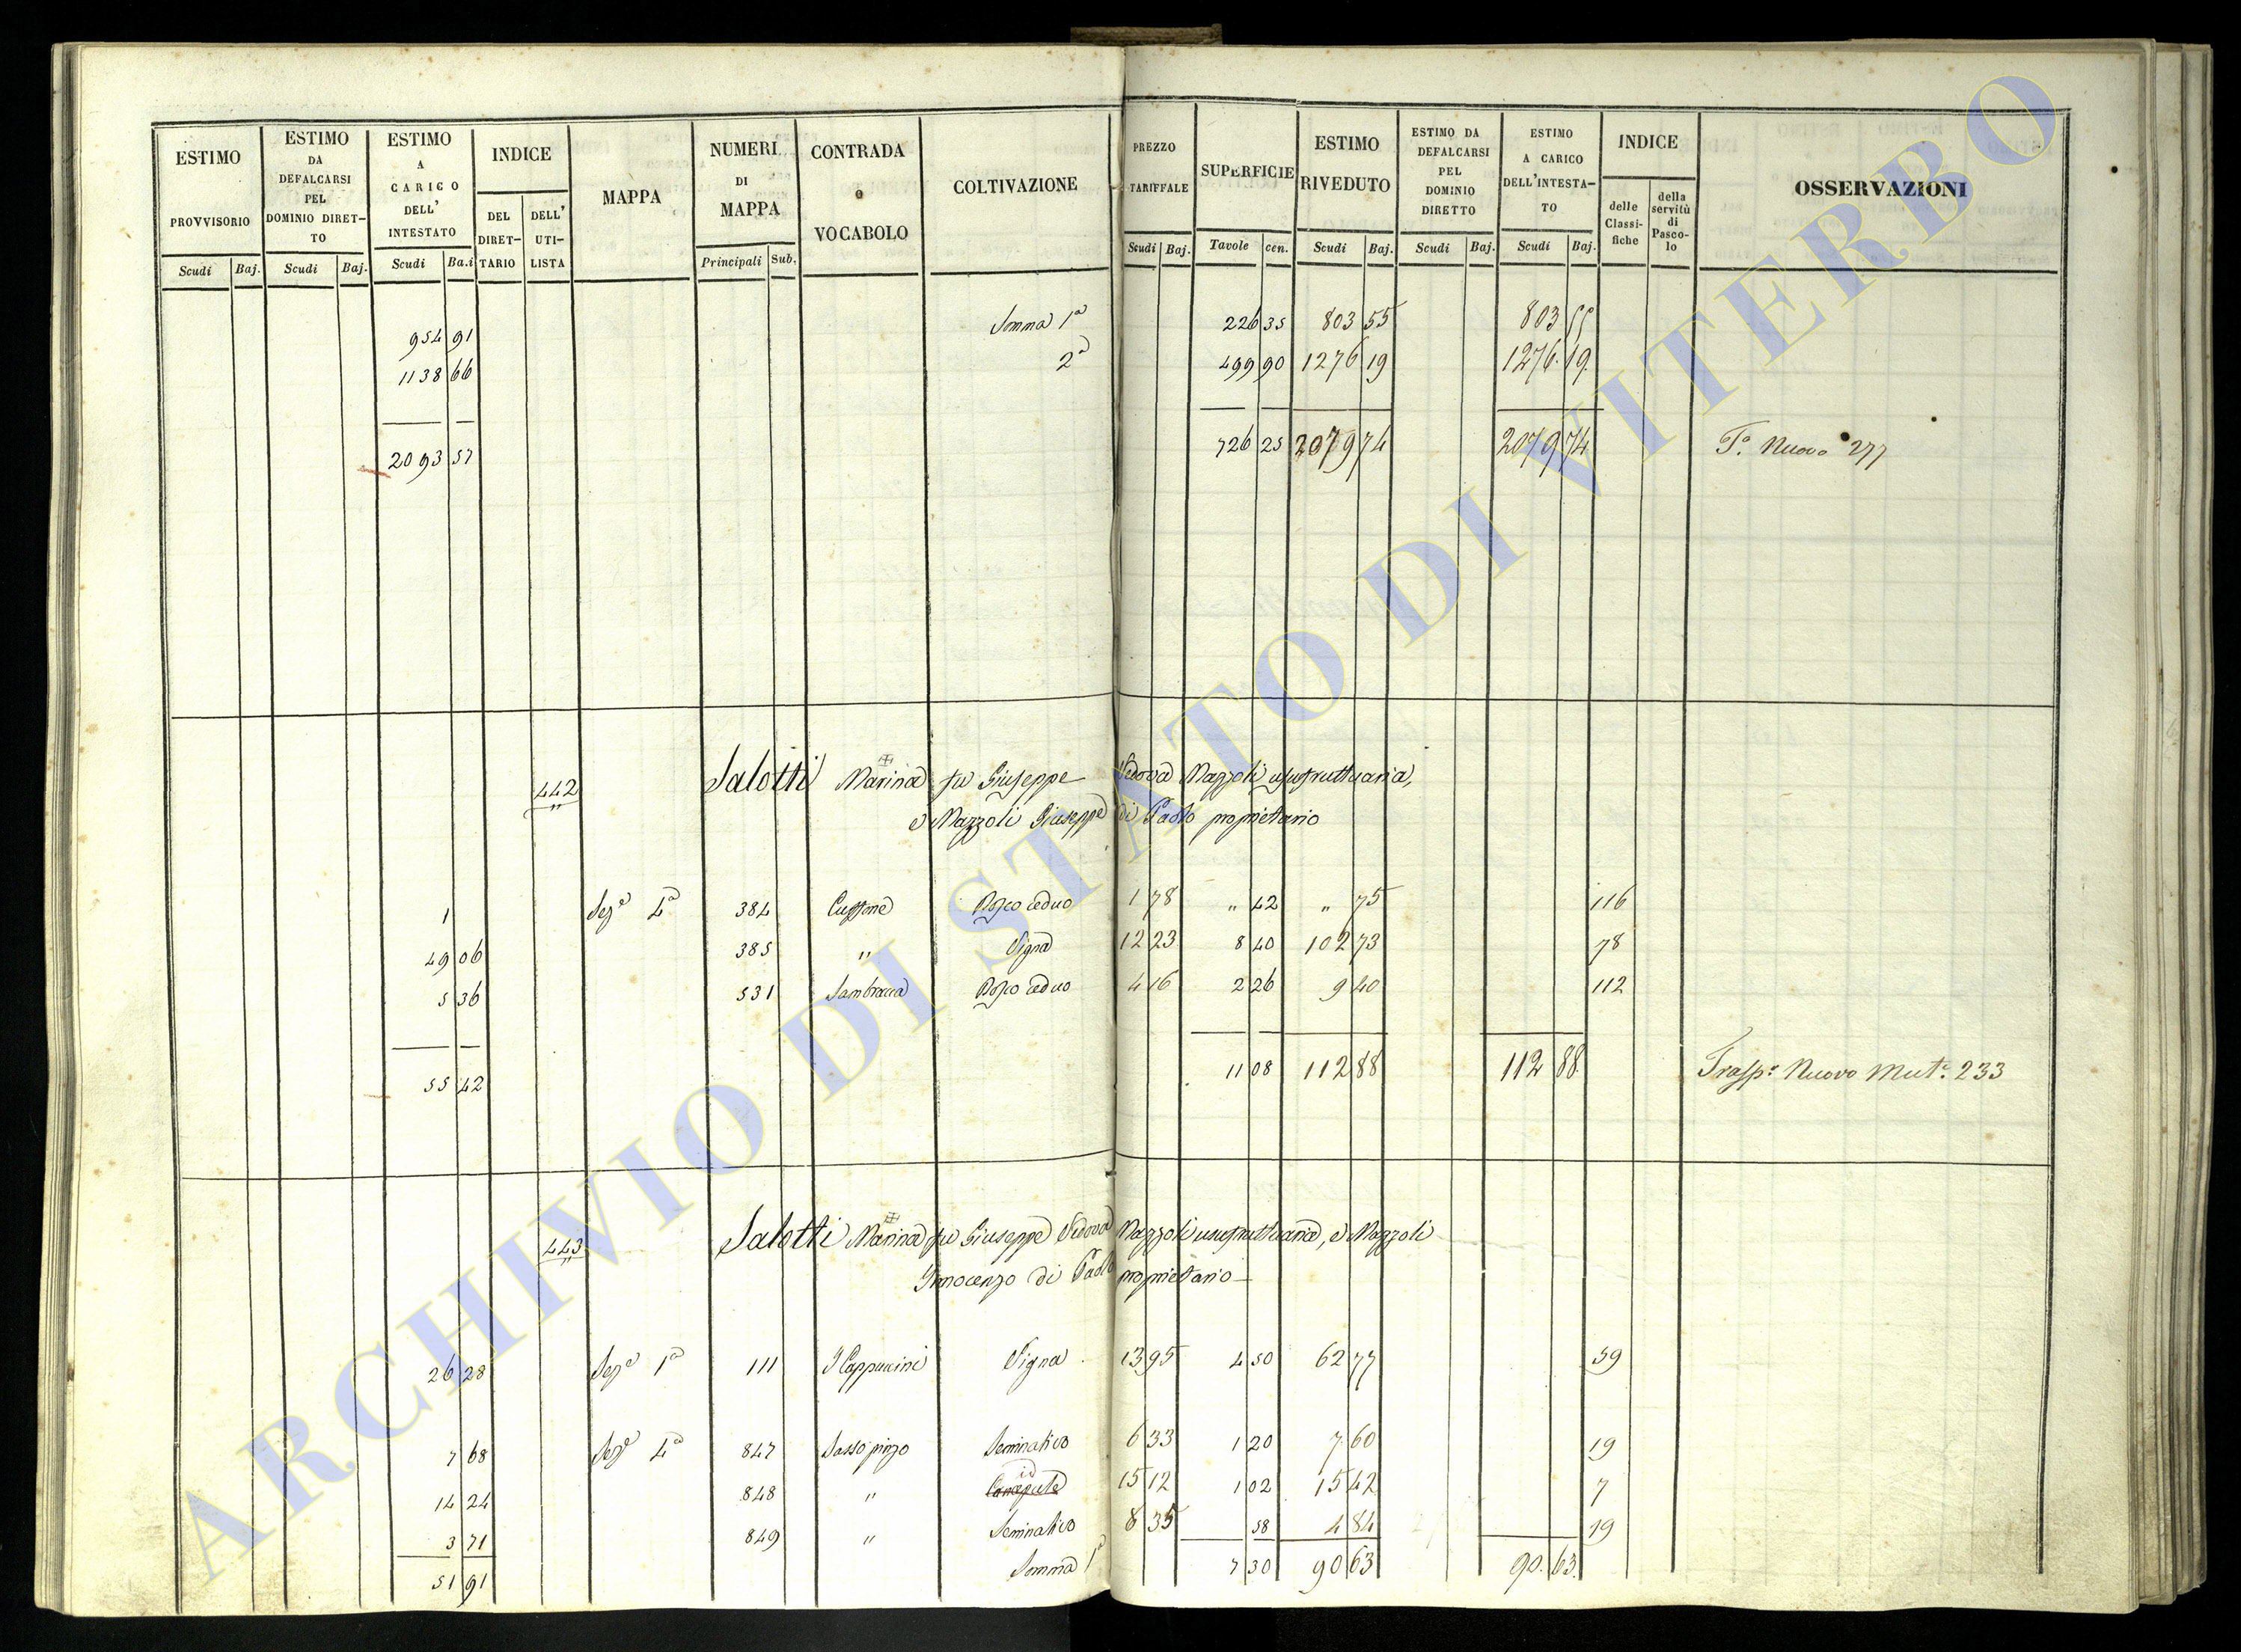 ESTIMO PROVVISORIO | ESTIMO DA DEFALCARSI PEL DOMINIO DIRETTO | ESTIMO A CARICO DELL' INTESTATO | INDICE | MAPPA | NUMERI DI MAPPA | CONTRADA o VOCABOLO | COLTIVAZIONE | PREZZO TARIFFALE | SUPERFICIE | ESTIMO RIVEDUTO | ESTIMO DA DEFALCARSI PEL DOMINIO DIRETTO | ESTIMO A CARICO DELL'INTESTATO | INDICE | OSSERVAZIONI
DEL DIRETTARIO | DELL' UTILISTA | delle Classifiche | della servitù di Pascolo
Scudi | Baj. | Scudi | Baj. | Scudi | Ba.i | Principali | Sub. | Scudi | Baj. | Tavole | cen. | Scudi | Baj. | Scudi | Baj. | Scudi | Baj.
954 91 Somma 1ª 226 35 803 55 803 55
1138 66 2ª 499 90 1276 19 1276. 19.
2093 57 726 25 2079 74 2079 74 T.º Nuovo 277
442 Salotti Marina fu Giuseppe Vedova Mazzoli usufruttuaria,
e Mazzoli Giuseppe di Paolo proprietario
1 Sez.e 4ª 384 Bosco ceduo 1 78 " 42 " 75 116
49 06 385 " Vigna 12 23 8 40 102 73 78
5 36 531 Bosco ceduo 4 16 2 26 9 40 112
55 42 11 08 112 88 112 88 Trasp.º Nuovo Mut.e 233
443 Salotti Marina fu Giuseppe Vedova Mazzoli usufruttuaria, e Mazzoli
Innocenzo di Paolo proprietario
26 28 Sez.e 1ª 111 I Cappuccini Vigna 13 95 4 50 62 77 59
7 68 Sez.e 4ª 847 Sasso pinzo Seminativo 6 33 1 20 7 60 19
id
14 24 848 " 15 12 1 02 15 42 7
3 71 849 " Seminativo 8 35 58 4 84 19
51 91 Somma 1ª 7 30 90 63 90. 63.
ARCHIVIO DI STATO DI VITERBO